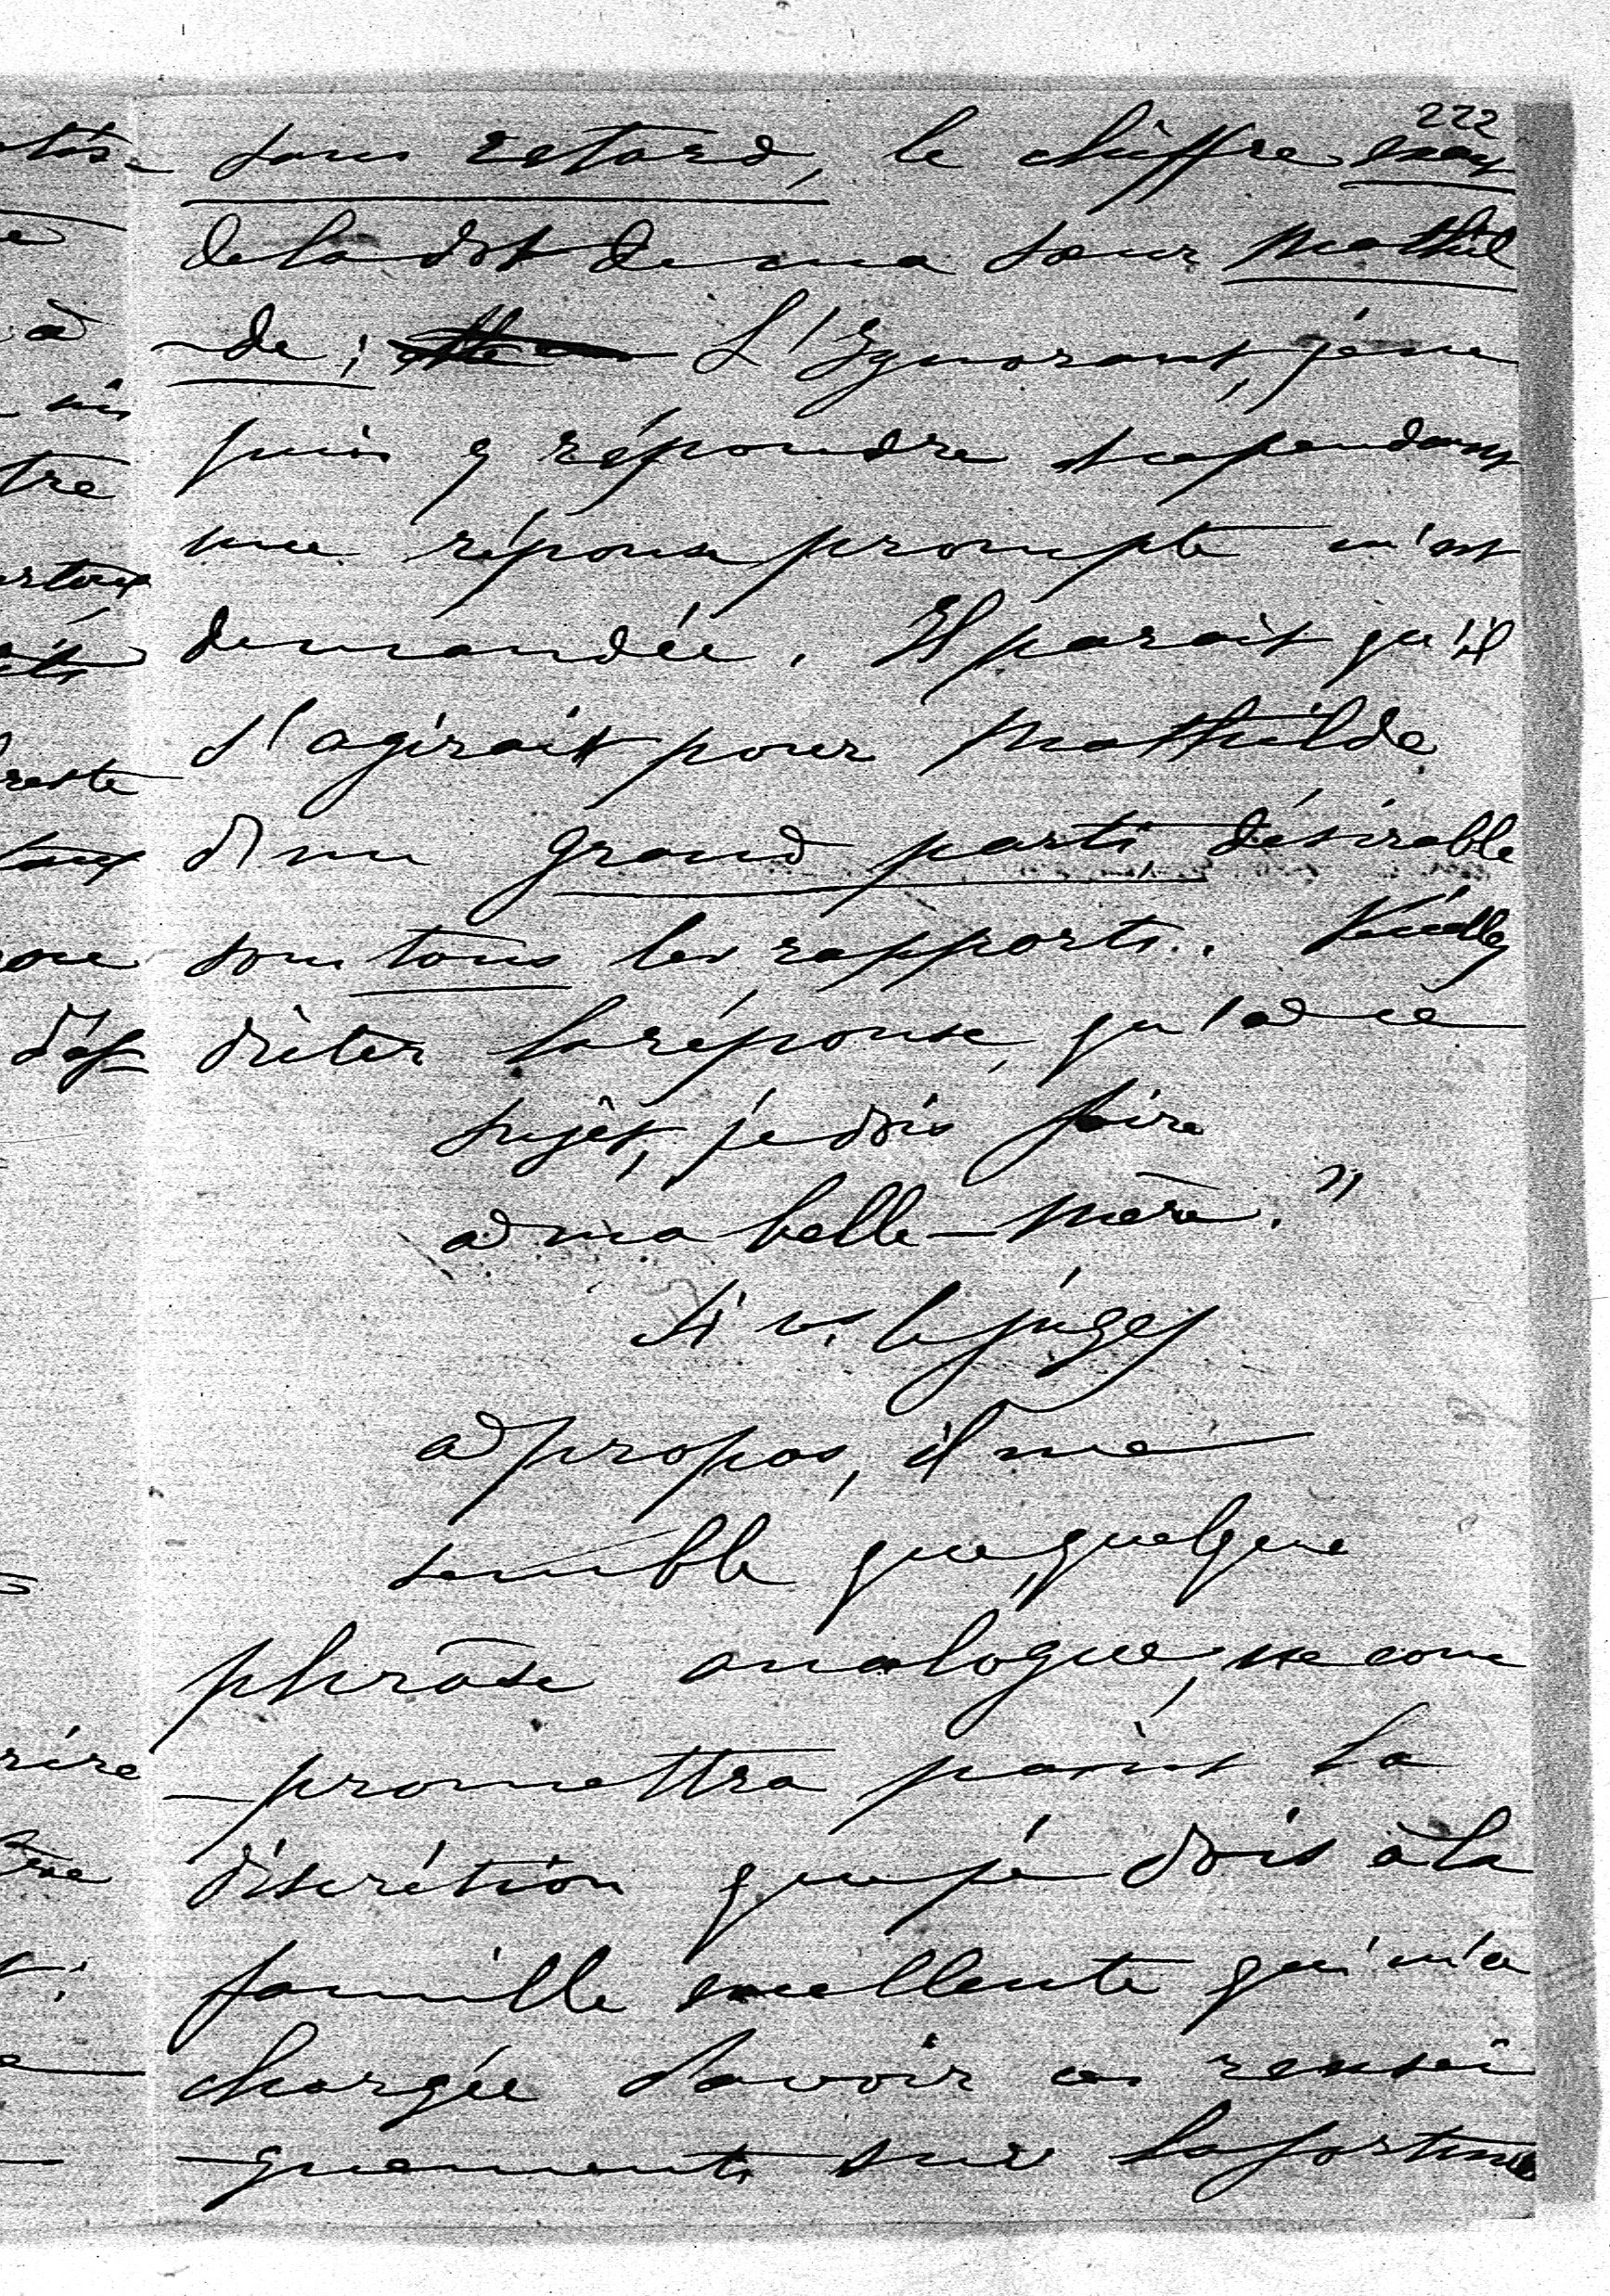 222
sans retard, le chiffre exact
de la dot de ma sœur Mathil
-de ; L'Ignorant, je ne
puis y répondre & cependant
une réponse prompte m'est
demandée. Il parait qu'il
s'agirait pour Mathilde
d'un grand parti désirable
sous tous les rapports.. Veuillez
dicter la réponse, qu'à ce
sujet, je dois faire
à ma belle-mère. "
Si vs. le jugez
à propos, il me
semble que, quelque
phrase analogue, ne com
-promettra point la
discrétion que je dois à la
famille excellente qui m'a
chargée d'avoir ces rensei
-gnements sur la fortune